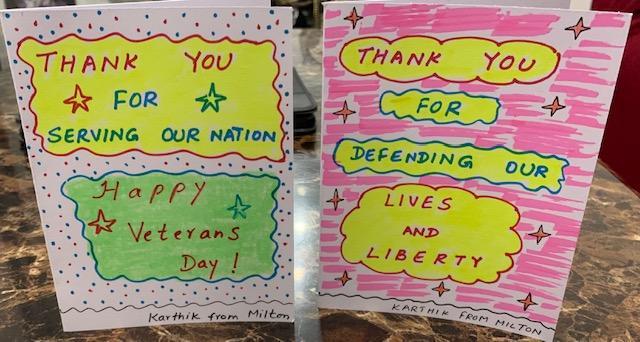 THANK YOU
FOR
SERVING OUR NATION
Happy
Veterans
Day!
Karthik from Milton
THANK YOU
FOR
DEFENDING OUR
LIVES
AND
LIBERTY
KARTHIK FROM MILTON